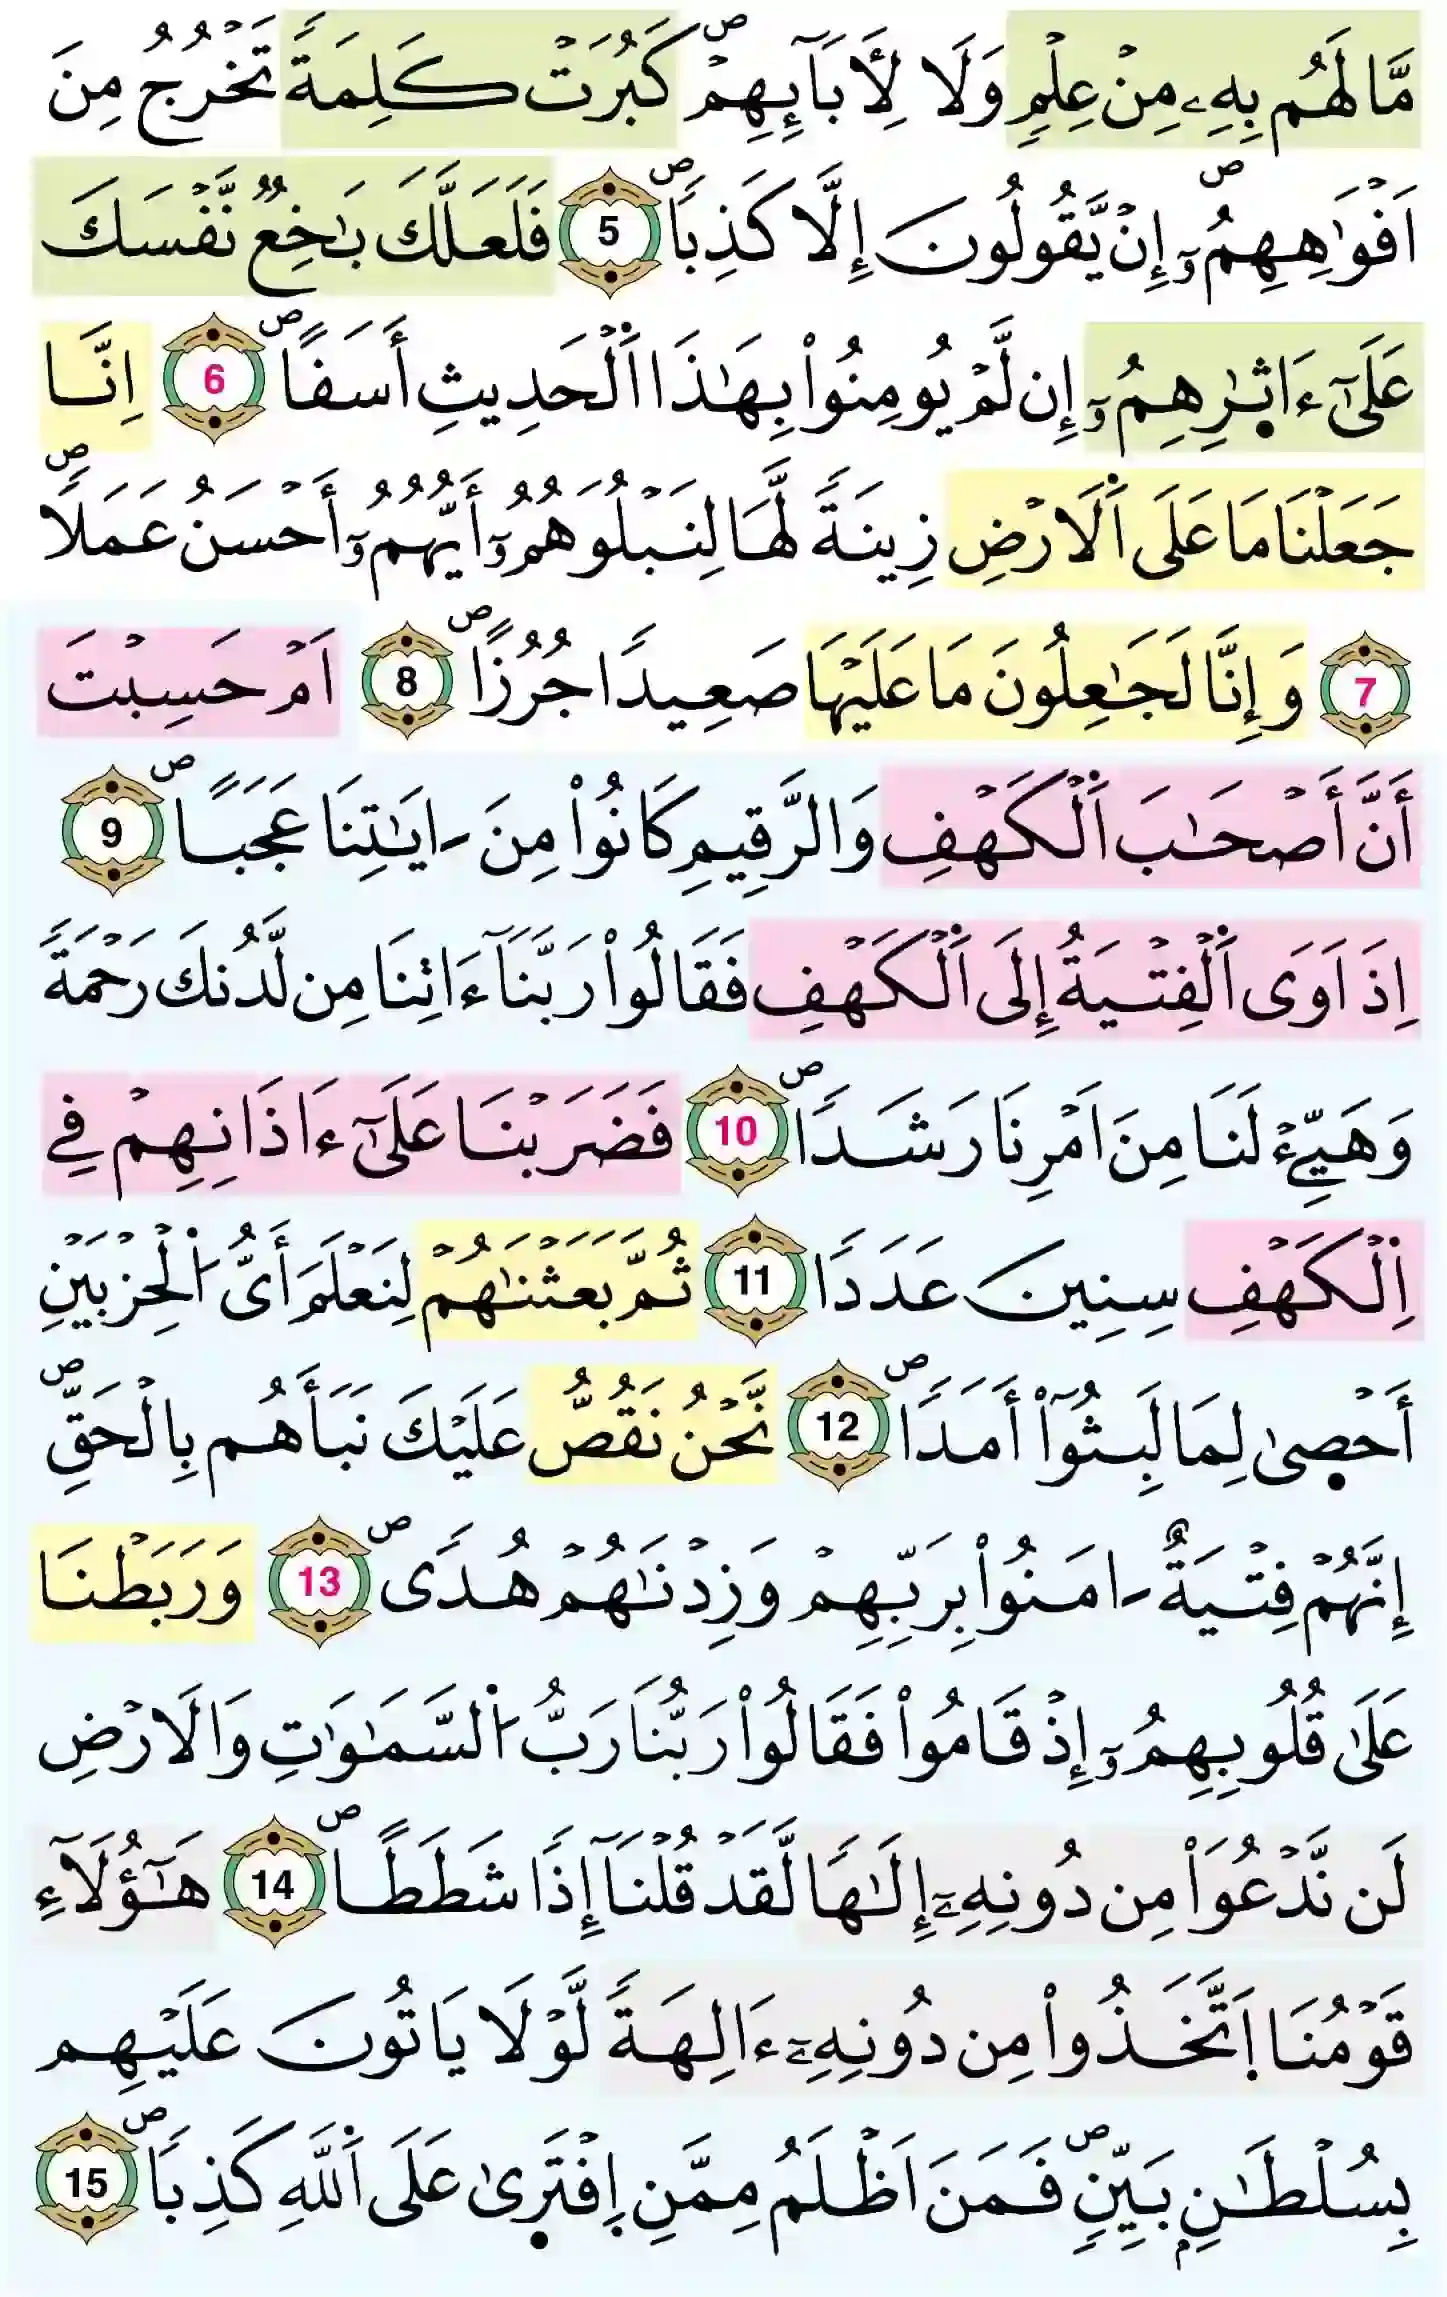 مَّا لَهُم بِهِۦ مِنْ عِلْمٖ وَلَا لِأٓبَآئِهِمْۖ كَبُرَتْ كَلِمَةٗ تَخْرُجُ مِنَ
اَفْوَٰهِهِمُۥٓۖ إِنْ يَّقُولُونَ إِلَّا كَذِباٗۖ 5 فَلَعَلَّكَ بَٰخِعٞ نَّفْسَكَ
عَلَىٰٓ ءَاثٰ۪رِهِمُۥٓ إِن لَّمْ يُومِنُواْ بِهَٰذَا اَ۬لْحَدِيثِ أَسَفاًۖ 6 اِنَّا
جَعَلْنَا مَا عَلَى اَ۬لَارْضِ زِينَةٗ لَّهَا لِنَبْلُوَهُمُۥٓ أَيُّهُمُۥٓ أَحْسَنُ عَمَلاٗۖ
7 وَإِنَّا لَجَٰعِلُونَ مَا عَلَيْهَا صَعِيداٗ جُرُزاًۖ 8 اَمْ حَسِبْتَ
أَنَّ أَصْحَٰبَ اَ۬لْكَهْفِ وَالرَّقِيمِ كَانُواْ مِنَ ـ اٰيَٰتِنَا عَجَباًۖ 9
اِذَ اَوَى اَ۬لْفِتْيَةُ إِلَى اَ۬لْكَهْفِ فَقَالُواْ رَبَّنَآ ءَاتِنَا مِن لَّدُنكَ رَحْمَةٗ
وَهَيِّۓْ لَنَا مِنَ اَمْرِنَا رَشَداٗۖ 10 فَضَرَبْنَا عَلَىٰٓ ءَاذَانِهِمْ فِے
اِ۬لْكَهْفِ سِنِينَ عَدَداٗ 11 ثُمَّ بَعَثْنَٰهُمْ لِنَعْلَمَ أَيُّ اُ۬لْحِزْبَيْنِ
أَحْص۪ىٰ لِمَا لَبِثُوٓاْ أَمَداٗۖ 12 نَّحْنُ نَقُصُّ عَلَيْكَ نَبَأَهُم بِالْحَقِّۖ
إِنَّهُمْ فِتْيَةٌ ـ اٰمَنُواْ بِرَبِّهِمْ وَزِدْنَٰهُمْ هُدىٗۖ 13 وَرَبَطْنَا
عَلَىٰ قُلُوبِهِمُۥٓ إِذْ قَامُواْ فَقَالُواْ رَبُّنَا رَبُّ اُ۬لسَّمَٰوَٰتِ وَالَارْضِ
لَن نَّدْعُوَاْ مِن دُونِهِۦٓ إِلَٰهاٗ لَّقَدْ قُلْنَآ إِذاٗ شَطَطاًۖ 14 هَٰٓؤُلَآءِ
قَوْمُنَا اَ۪تَّخَذُواْ مِن دُونِهِۦٓ ءَالِهَةٗ لَّوْلَا يَاتُونَ عَلَيْهِم
بِسُلْطَٰنِۢ بَيِّنٖۖ فَمَنَ اَظْلَمُ مِمَّنِ اِ۪فْتَر۪ىٰ عَلَى اَ۬للَّهِ كَذِباٗۖ 15